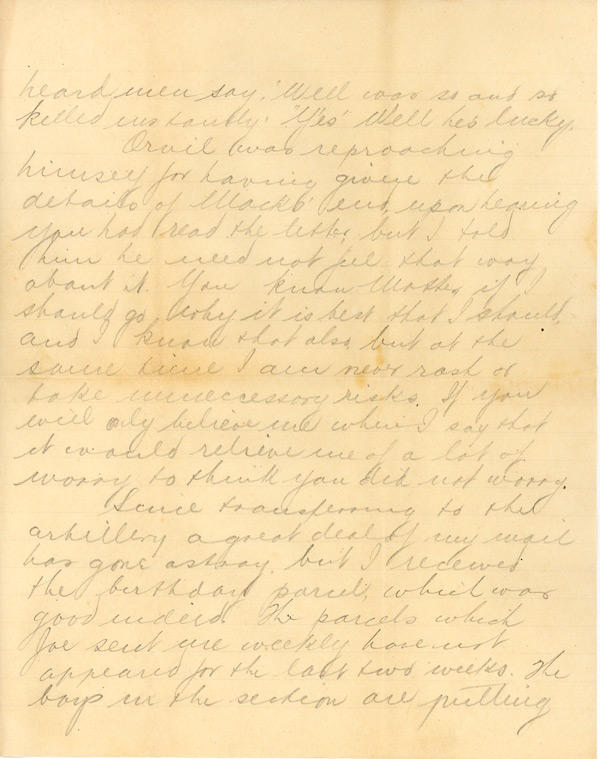 heard men say, "Well was so and so
killed instantly." "Yes" Well he's lucky.
Orvil was reproaching
himself for having given the
details of Macks' end, upon hearing
you had read the letter, but I told
him he need not feel that way
about it. You know Mother, if I
should go, why it is best that I should,
and I know that also, but at the
same time I am never rash or
take unneccessory risks. If you
will only believe me when I say that
it would relieve me of a lot of
worry to think you did not worry.
Since transferring to the
artillery a great deal of my mail
has gone astray, but I received
the birthday parcel, which was
good indeed. The parcels which
Joe sent me weekly have not
appeared for the last two weeks. The
boys in the section are putting